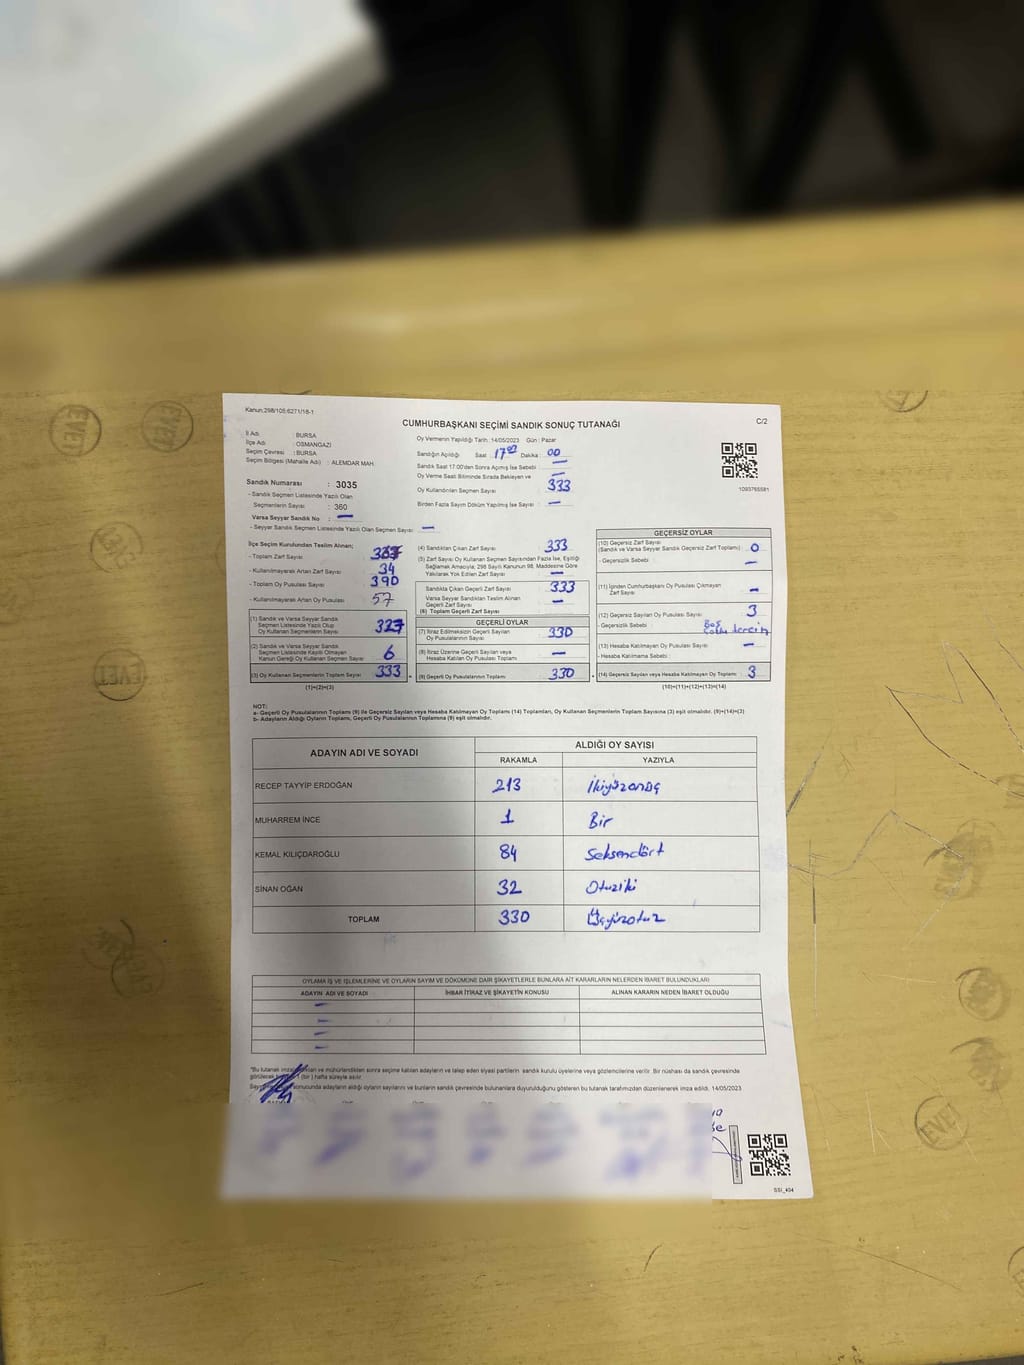 Kanun:298/105;6271/18-1
CUMHURBAŞKANI SEÇİMİ SANDIK SONUÇ TUTANAĞI
C/2
İl Adı : BURSA
İlçe Adı : OSMANGAZİ
Seçim Çevresi : BURSA
Seçim Bölgesi (Mahalle Adı) : ALEMDAR MAH.
Oy Vermenin Yapıldığı Tarih : 14/05/2023 Gün : Pazar
Sandığın Açıldığı Saat : 17:00 Dakika : 00
Sandık Saat 17:00'den Sonra Açılmış İse Sebebi : —
Oy Verme Saati Bitiminde Sırada Bekleyen ve —
Oy Kullandırılan Seçmen Sayısı : 333
Birden Fazla Sayım Döküm Yapılmış İse Sayısı : —
1093765581
Sandık Numarası : 3035
- Sandık Seçmen Listesinde Yazılı Olan
Seçmenlerin Sayısı : 360
Varsa Seyyar Sandık No : —
- Seyyar Sandık Seçmen Listesinde Yazılı Olan Seçmen Sayısı : —
İlçe Seçim Kurulundan Teslim Alınan;
- Toplam Zarf Sayısı
- Kullanılmayarak Artan Zarf Sayısı : 34
- Toplam Oy Pusulası Sayısı : 390
- Kullanılmayarak Artan Oy Pusulası : 57
(1) Sandık ve Varsa Seyyar Sandık
Seçmen Listesinde Yazılı Olup
Oy Kullanan Seçmenlerin Sayısı : 327
(2) Sandık ve Varsa Seyyar Sandık
Seçmen Listesinde Kayıtlı Olmayan
Kanun Gereği Oy Kullanan Seçmen Sayısı : 6
(3) Oy Kullanan Seçmenlerin Toplam Sayısı : 333
(1)+(2)=(3)
(4) Sandıktan Çıkan Zarf Sayısı : 333
(5) Zarf Sayısı Oy Kullanan Seçmen Sayısından Fazla İse, Eşitliği
Sağlamak Amacıyla; 298 Sayılı Kanunun 98. Maddesine Göre
Yakılarak Yok Edilen Zarf Sayısı : —
Sandıkta Çıkan Geçerli Zarf Sayısı : 333
Varsa Seyyar Sandıktan Teslim Alınan
Geçerli Zarf Sayısı : —
(6) Toplam Geçerli Zarf Sayısı :
GEÇERLİ OYLAR
(7) İtiraz Edilmeksizin Geçerli Sayılan
Oy Pusulalarının Sayısı : 330
(8) İtiraz Üzerine Geçerli Sayılan veya
Hesaba Katılan Oy Pusulası Toplamı : —
(9) Geçerli Oy Pusulalarının Toplamı : 330
GEÇERSİZ OYLAR
(10) Geçersiz Zarf Sayısı
(Sandık ve Varsa Seyyar Sandık Geçersiz Zarf Toplamı) : 0
- Geçersizlik Sebebi : —
(11) İçinden Cumhurbaşkanı Oy Pusulası Çıkmayan
Zarf Sayısı : —
(12) Geçersiz Sayılan Oy Pusulası Sayısı : 3
- Geçersizlik Sebebi : Boş
tercih
(13) Hesaba Katılmayan Oy Pusulası Sayısı : —
- Hesaba Katılmama Sebebi :
(14) Geçersiz Sayılan veya Hesaba Katılmayan Oy Toplamı : 3
(10)+(11)+(12)+(13)=(14)
NOT:
a- Geçerli Oy Pusulalarının Toplamı (9) ile Geçersiz Sayılan veya Hesaba Katılmayan Oy Toplamı (14) Toplamları, Oy Kullanan Seçmenlerin Toplam Sayısına (3) eşit olmalıdır. (9)+(14)=(3)
b- Adayların Aldığı Oyların Toplamı, Geçerli Oy Pusulalarının Toplamına (9) eşit olmalıdır.
ADAYIN ADI VE SOYADI
ALDIĞI OY SAYISI
RAKAMLA YAZIYLA
RECEP TAYYİP ERDOĞAN 213 İkiyüzonüç
MUHARREM İNCE 1 Bir
KEMAL KILIÇDAROĞLU 84 Seksendört
SİNAN OĞAN 32 Otuziki
TOPLAM 330 Üçyüzotuz
OYLAMA İŞ VE İŞLEMLERİNE VE OYLARIN SAYIM VE DÖKÜMÜNE DAİR ŞİKAYETLERLE BUNLARA AİT KARARLARIN NELERDEN İBARET BULUNDUKLARI
ADAYIN ADI VE SOYADI İHBAR İTİRAZ VE ŞİKAYETİN KONUSU ALINAN KARARIN NEDEN İBARET OLDUĞU
—
—
—
—
*Bu tutanak ve mühürlendikten sonra seçime katılan adayların ve talep eden siyasi partilerin sandık kurulu üyelerine veya gözlemcilerine verilir. Bir nüshası da sandık çevresinde
görülecek (bir) hafta süreyle asılır.
sonucunda adayların aldığı oyların sayısını ve bunların sandık çevresinde bulunanlara duyurulduğunu gösteren bu tutanak tarafımızdan düzenlenerek imza edildi. 14/05/2023
SSİ_404
EVET
EVET
EVET
EVET